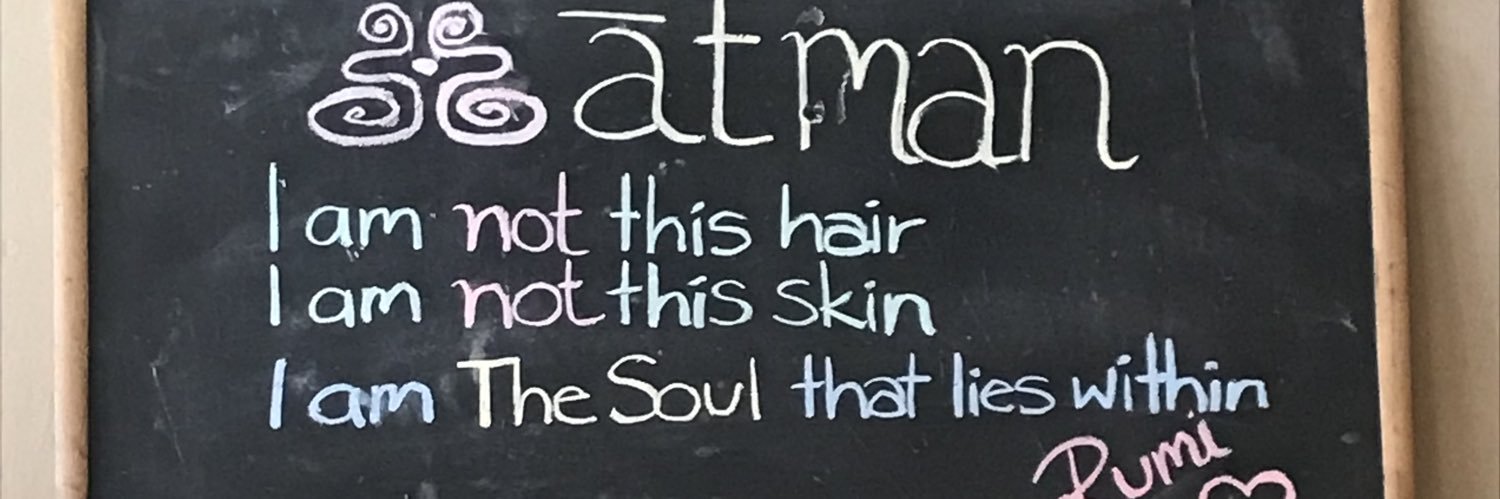 ātman
I am not this hair
I am not this skin
I am The Soul that lies within
Rumi